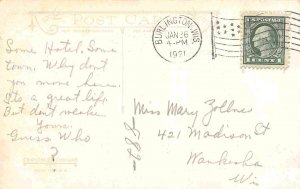 POST CARD
BURLINGTON, WIS
JAN 26
4-PM
1921
1 CENT 1
Some Hotel. Some
town. Why don't
you move here.
Its a great life
But don't weaken
Yours.
Guess Who
?
Miss Mary Zollner
421 Madison St
Waukesha
Wis